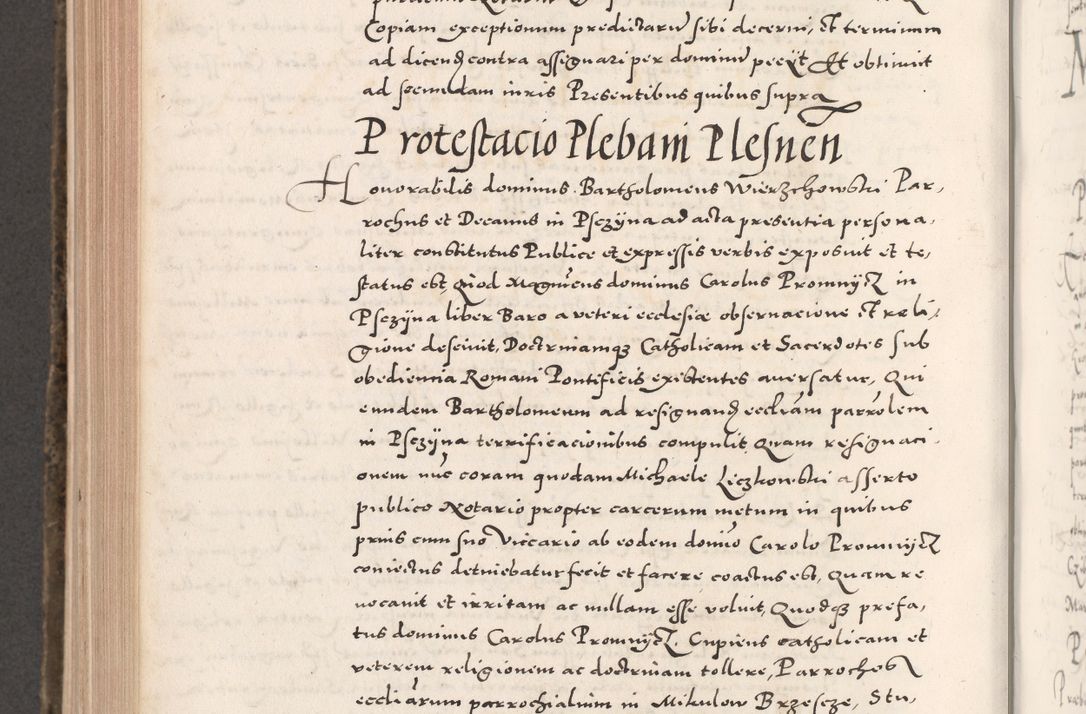 Copiam exceptionum predictarũ sibi decerni, Et terminum
ad dicend contra assignari per dominũ peeyt Et obtinuit
ad secundam iuris Presentibus quibus supra
Protestacio Plebani Plesnen
Honorabilis dominus Bartholomeus Wierzchowski Par-
rochus et Decanus in Psczyna ad acta presentia persona,
liter constitutus Publice et expressis verbis exposuit et te,
status est Quod Magnicus dominus Carolus Promnycz in
Psczyna liber Baro a veteri ecclesiæ obseruacione Et reli,
gione desciuit, Doctrinamq3 Catholicam et Sacerdotes sub
obediencia Romani Pontificis existentes auersatur, Qui
eundem Bartholomeum ad resignand eccliam parrolem
in Psczyna terrificacionibus compulit, Quam resignaci-
onem nuc coram quodam Michaele Liczkowski asserto
publico Notario propter carcerum metum in quibus
prius cum suo Viccario ab eodem domio Carolo Promnycz
coniectus detniebatur fecit et facere coactus est, Quam re
uocauit et irritam ac nullam esse voluit, Quodq3 prefa,
tus dominus Carolus Promnycz. Cupiens catholicam et
veterem religionem ac doctrinam tollere, Parrochos
eccliarum parrochialium in Mikulow Brzescze, Stu,